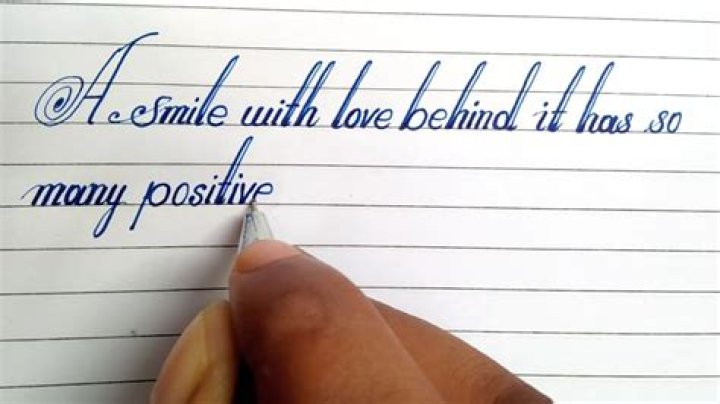 A smile with love behind it has so
many positive